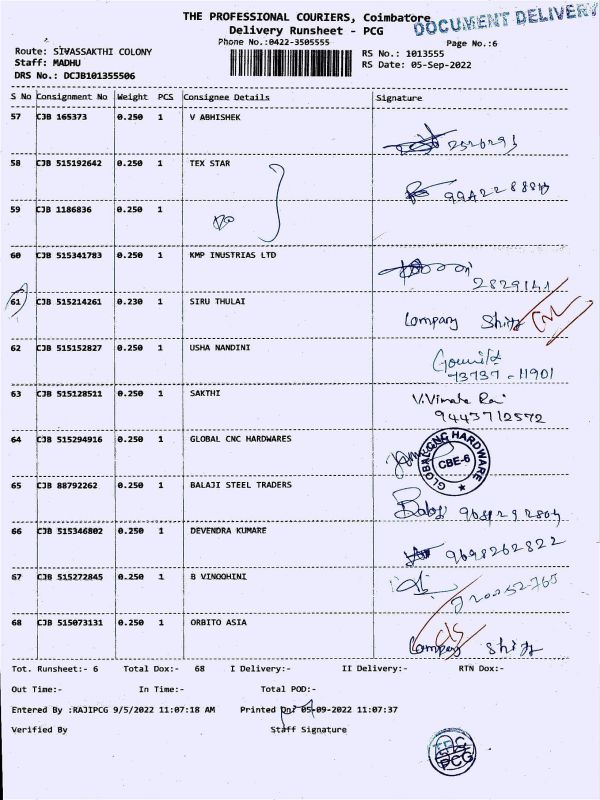 THE PROFESSIONAL COURIERS, Coimbatore
DOCUMENT DELIVERY
Delivery Runsheet - PCG
Phone No.:0422-3505555
Page No.:6
Route: SIVASSAKTHI COLONY
RS No.: 1013555
Staff: MADHU
RS Date: 05-Sep-2022
DRS No.: DCJB101355506
S No Consignment No Weight PCS Consignee Details Signature
57 CJB 165373 0.250 1 V ABHISHEK
58 CJB 515192642 0.250 1 TEX STAR
59 CJB 1186836 0.250 1
60 CJB 515341783 0.250 1 KMP INUSTRIAS LTD
2829141
61 CJB 515214261 0.230 1 SIRU THULAI
Company Shift
62 CJB 515152827 0.250 1 USHA NANDINI
73737-11901
63 CJB 515128511 0.250 1 SAKTHI
9443712572
64 CJB 515294916 0.250 1 GLOBAL CNC HARDWARES
GLOBAL CNC HARDWARE
CBE-6
65 CJB 88792262 0.250 1 BALAJI STEEL TRADERS
66 CJB 515346802 0.250 1 DEVENDRA KUMARE
9698262822
67 CJB 515272845 0.250 1 B VINOOHINI
68 CJB 515073131 0.250 1 ORBITO ASIA
Company Shift
Tot. Runsheet:- 6 Total Dox:- 68 I Delivery:- II Delivery:- RTN Dox:-
Out Time:- In Time:- Total POD:-
Entered By :RAJIPCG 9/5/2022 11:07:18 AM Printed On: 05-09-2022 11:07:37
Verified By Staff Signature
TPC
PCG